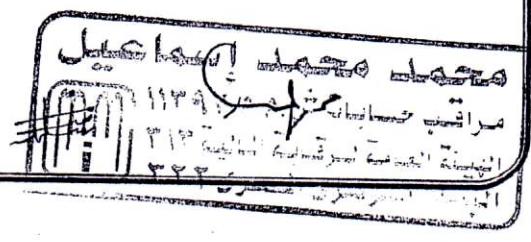 محمد محمد إسماعيل
مراقب حسابات ١١٣٩١
الهيئة العامة للرقابة المالية ٣١٢
٣٢٢